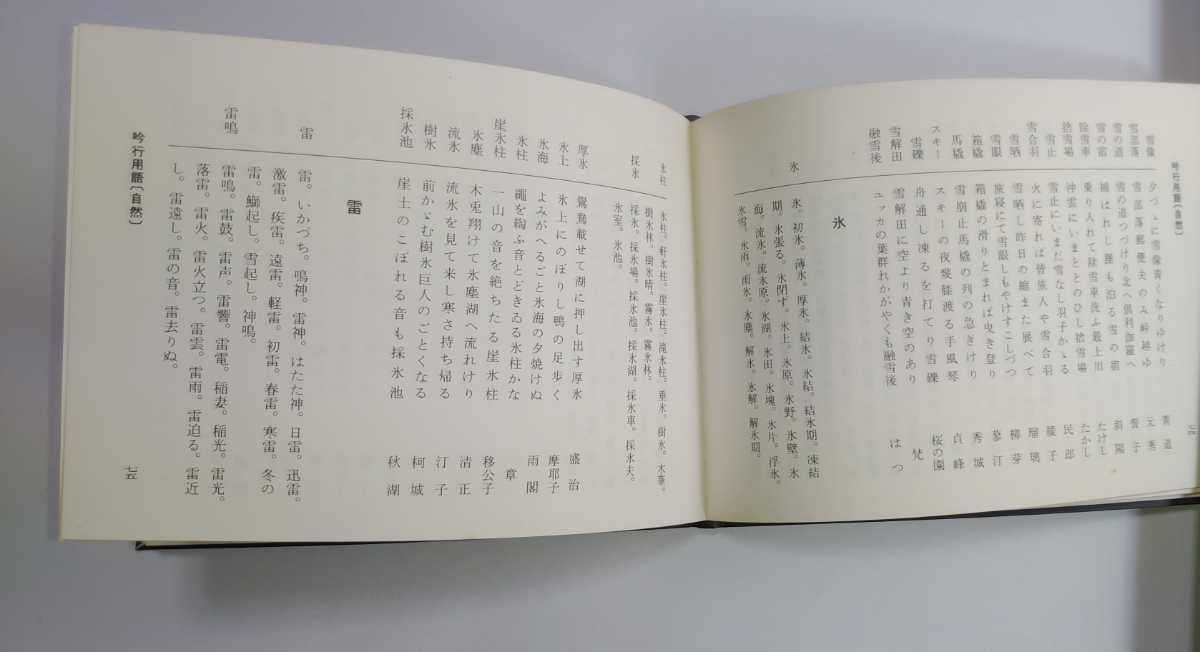 吟行用語〔自然〕
雪像 夕づゝに雪像青くなりゆけり
雪部落 雪部落郵便夫のみ峠越ゆ
雪の道 雪の道つづけり北へ倶利伽羅へ 誓子
雪の宿 も泊る雪の宿
除雪車 乗り入れて除雪車洗ふ最上川 たけし
捨雪場 沖雲にいまととのひし捨雪場 たかし
雪止 雪止にいまだ雪なし羽子かゝる 民郎
雪合羽 火に寄れば皆旅人や雪合羽 綾子
雪晒 雪晒し昨日の縮また展べて 瑠璃
雪眼 旅寝にて雪眼しもやけすこしづつ 柳芽
箱橇 箱橇の滑りとまれば曳き登り 蓼汀
馬橇 雪崩止馬橇の列の急ぎけり 秀城
スキー スキーの夜幾膝渡る手風琴 貞峰
雪礫 舟通し凍るを打てり雪礫 桜の園
雪解田 雪解田に空より青き空のあり 梵
融雪後 ユッカの葉群れかがやくも融雪後 はつ
氷
氷 氷。初氷。薄氷。厚氷。結氷。氷結。結氷期。凍結
期。氷張る。氷閉ず。氷上。氷原。氷野。氷壁。氷
海。流氷。流氷原。氷湖。氷田。氷塊。氷片。浮氷。
氷雪。氷雨。雨氷。氷塵。解氷。氷解。解氷期。
七四
氷柱 氷柱。軒氷柱。崖氷柱。滝氷柱。垂氷。樹氷。木華。
樹氷林。樹氷晴。霧氷。霧氷林。
採氷 採氷。採氷場。採氷池。採氷湖。採氷車。採氷夫。
氷室。氷池。
厚氷 鴛鴦載せて湖に押し出す厚氷 盛治
氷上 氷上にのぼりし鴨の足歩く 摩耶子
氷海 よみがへるごと氷海の夕焼けぬ 雨閣
氷柱 縄を綯ふ音とどきゐる氷柱かな 章
崖氷柱 一山の音を絶ちたる崖氷柱 移公子
氷塵 木兎翔けて氷塵湖へ流れけり 清正
流氷 流氷を見て来し寒さ持ち帰る 汀子
樹氷 前かゞむ樹氷巨人のごとくなる 柯城
採氷池 崖土のこぼれる音も採氷池 秋湖
雷
雷 雷。いかづち。鳴神。雷神。はたた神。日雷。迅雷。
激雷。疾雷。遠雷。軽雷。初雷。春雷。寒雷。冬の
雷。鰤起し。雪起し。神鳴。
雷鳴 雷鳴。雷鼓。雷声。雷響。雷電。稲妻。稲光。雷光。
落雷。雷火。雷火立つ。雷雲。雷雨。雷迫る。雷近
し。雷遠し。雷の音。雷去りぬ。
吟行用語〔自然〕
七五